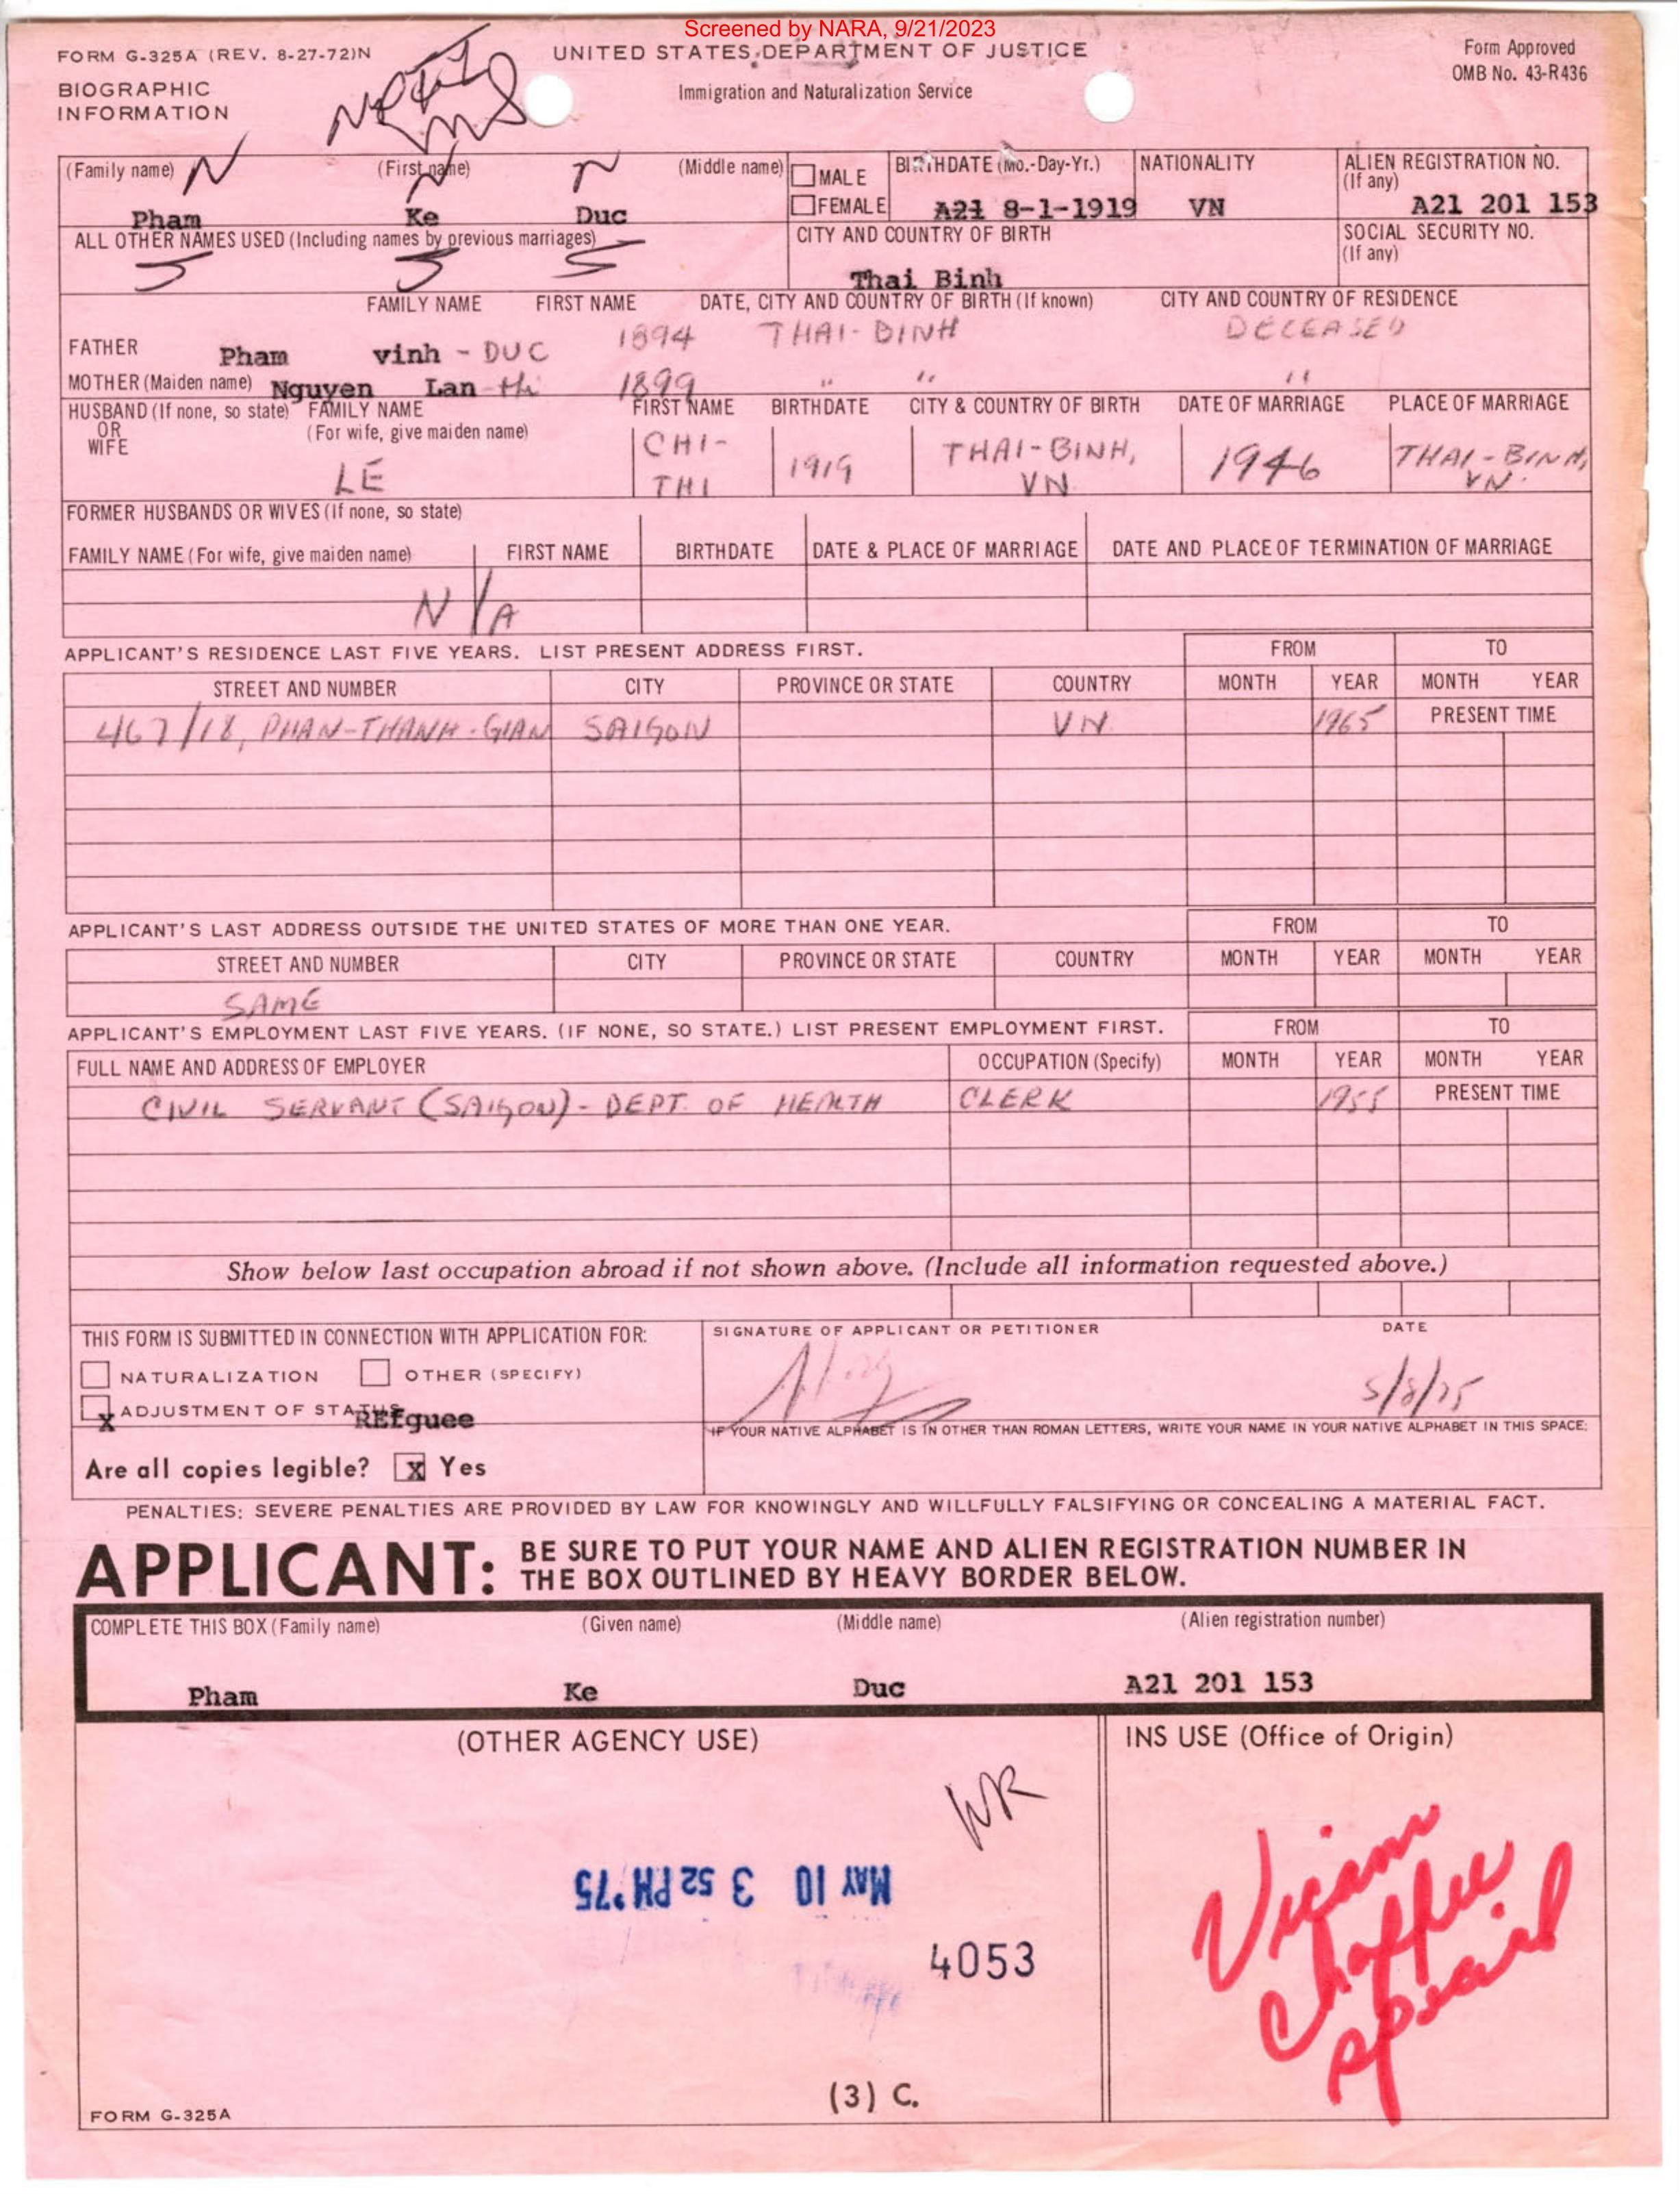 Screened by NARA, 9/21/2023
FORM G-325A (REV. 8-27-72)N
UNITED STATES DEPARTMENT OF JUSTICE
Form Approved
OMB No. 43-R436
BIOGRAPHIC
INFORMATION
Immigration and Naturalization Service
(Family name) N (First name) N N (Middle name) MALE BIRTHDATE (Mo.-Day-Yr.) NATIONALITY ALIEN REGISTRATION NO.
(If any)
Pham Ke Duc FEMALE A21 8-1-1919 VN A21 201 153
ALL OTHER NAMES USED (Including names by previous marriages) CITY AND COUNTRY OF BIRTH SOCIAL SECURITY NO.
(If any)
Thai Binh
FAMILY NAME FIRST NAME DATE, CITY AND COUNTRY OF BIRTH (If known) CITY AND COUNTRY OF RESIDENCE
FATHER Pham vinh - DUC 1894 THAI-BINH DECEASED
MOTHER (Maiden name) Nguyen Lan-thi 1899 " " "
HUSBAND (If none, so state) FAMILY NAME FIRST NAME BIRTHDATE CITY & COUNTRY OF BIRTH DATE OF MARRIAGE PLACE OF MARRIAGE
OR
WIFE
(For wife, give maiden name)
LE CHI-THI 1919 THAI-BINH, VN. 1946 THAI-BINH, VN.
FORMER HUSBANDS OR WIVES (If none, so state)
FAMILY NAME (For wife, give maiden name) FIRST NAME BIRTHDATE DATE & PLACE OF MARRIAGE DATE AND PLACE OF TERMINATION OF MARRIAGE
N/A
APPLICANT'S RESIDENCE LAST FIVE YEARS. LIST PRESENT ADDRESS FIRST. FROM TO
STREET AND NUMBER CITY PROVINCE OR STATE COUNTRY MONTH YEAR MONTH YEAR
467/18, PHAN-THANH-GIAN SAIGON VN. 1965 PRESENT TIME
APPLICANT'S LAST ADDRESS OUTSIDE THE UNITED STATES OF MORE THAN ONE YEAR. FROM TO
STREET AND NUMBER CITY PROVINCE OR STATE COUNTRY MONTH YEAR MONTH YEAR
SAME
APPLICANT'S EMPLOYMENT LAST FIVE YEARS. (IF NONE, SO STATE.) LIST PRESENT EMPLOYMENT FIRST. FROM TO
FULL NAME AND ADDRESS OF EMPLOYER OCCUPATION (Specify) MONTH YEAR MONTH YEAR
CIVIL SERVANT (SAIGON) - DEPT. OF HEALTH CLERK 1955 PRESENT TIME
Show below last occupation abroad if not shown above. (Include all information requested above.)
THIS FORM IS SUBMITTED IN CONNECTION WITH APPLICATION FOR: SIGNATURE OF APPLICANT OR PETITIONER DATE
NATURALIZATION OTHER (SPECIFY)
5/8/75
x ADJUSTMENT OF STATUS REfguee
IF YOUR NATIVE ALPHABET IS IN OTHER THAN ROMAN LETTERS, WRITE YOUR NAME IN YOUR NATIVE ALPHABET IN THIS SPACE:
Are all copies legible? x Yes
PENALTIES: SEVERE PENALTIES ARE PROVIDED BY LAW FOR KNOWINGLY AND WILLFULLY FALSIFYING OR CONCEALING A MATERIAL FACT.
APPLICANT: BE SURE TO PUT YOUR NAME AND ALIEN REGISTRATION NUMBER IN
THE BOX OUTLINED BY HEAVY BORDER BELOW.
COMPLETE THIS BOX (Family name) (Given name) (Middle name) (Alien registration number)
Pham Ke Duc A21 201 153
(OTHER AGENCY USE) INS USE (Office of Origin)
WR
MAY 10 3 52 PM '75
4053
Chaffee
Special
(3) C.
FORM G-325A